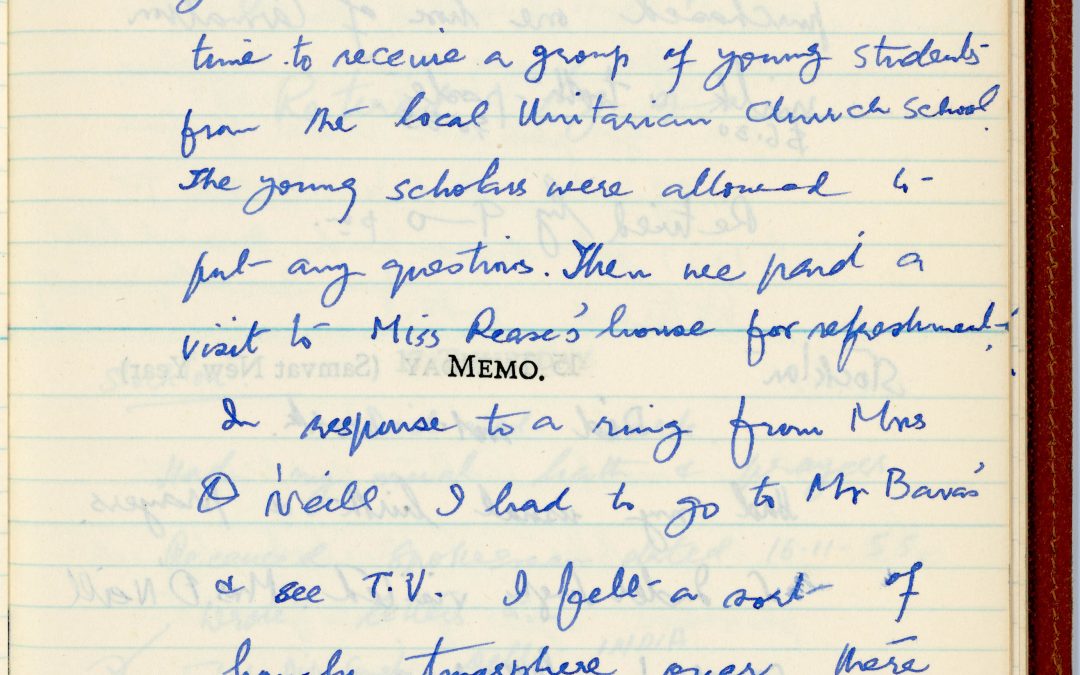 time to receive a group of young students
from the local Unitarian Church School.
The young scholars were allowed to
put any questions. Then we paid a
visit to Miss Rease's house for refreshment.
MEMO.
In response to a ring from Mrs
O'Neill I had to go to Mr Bava's
& see T.V. I felt a sort of
homely atmosphere over there